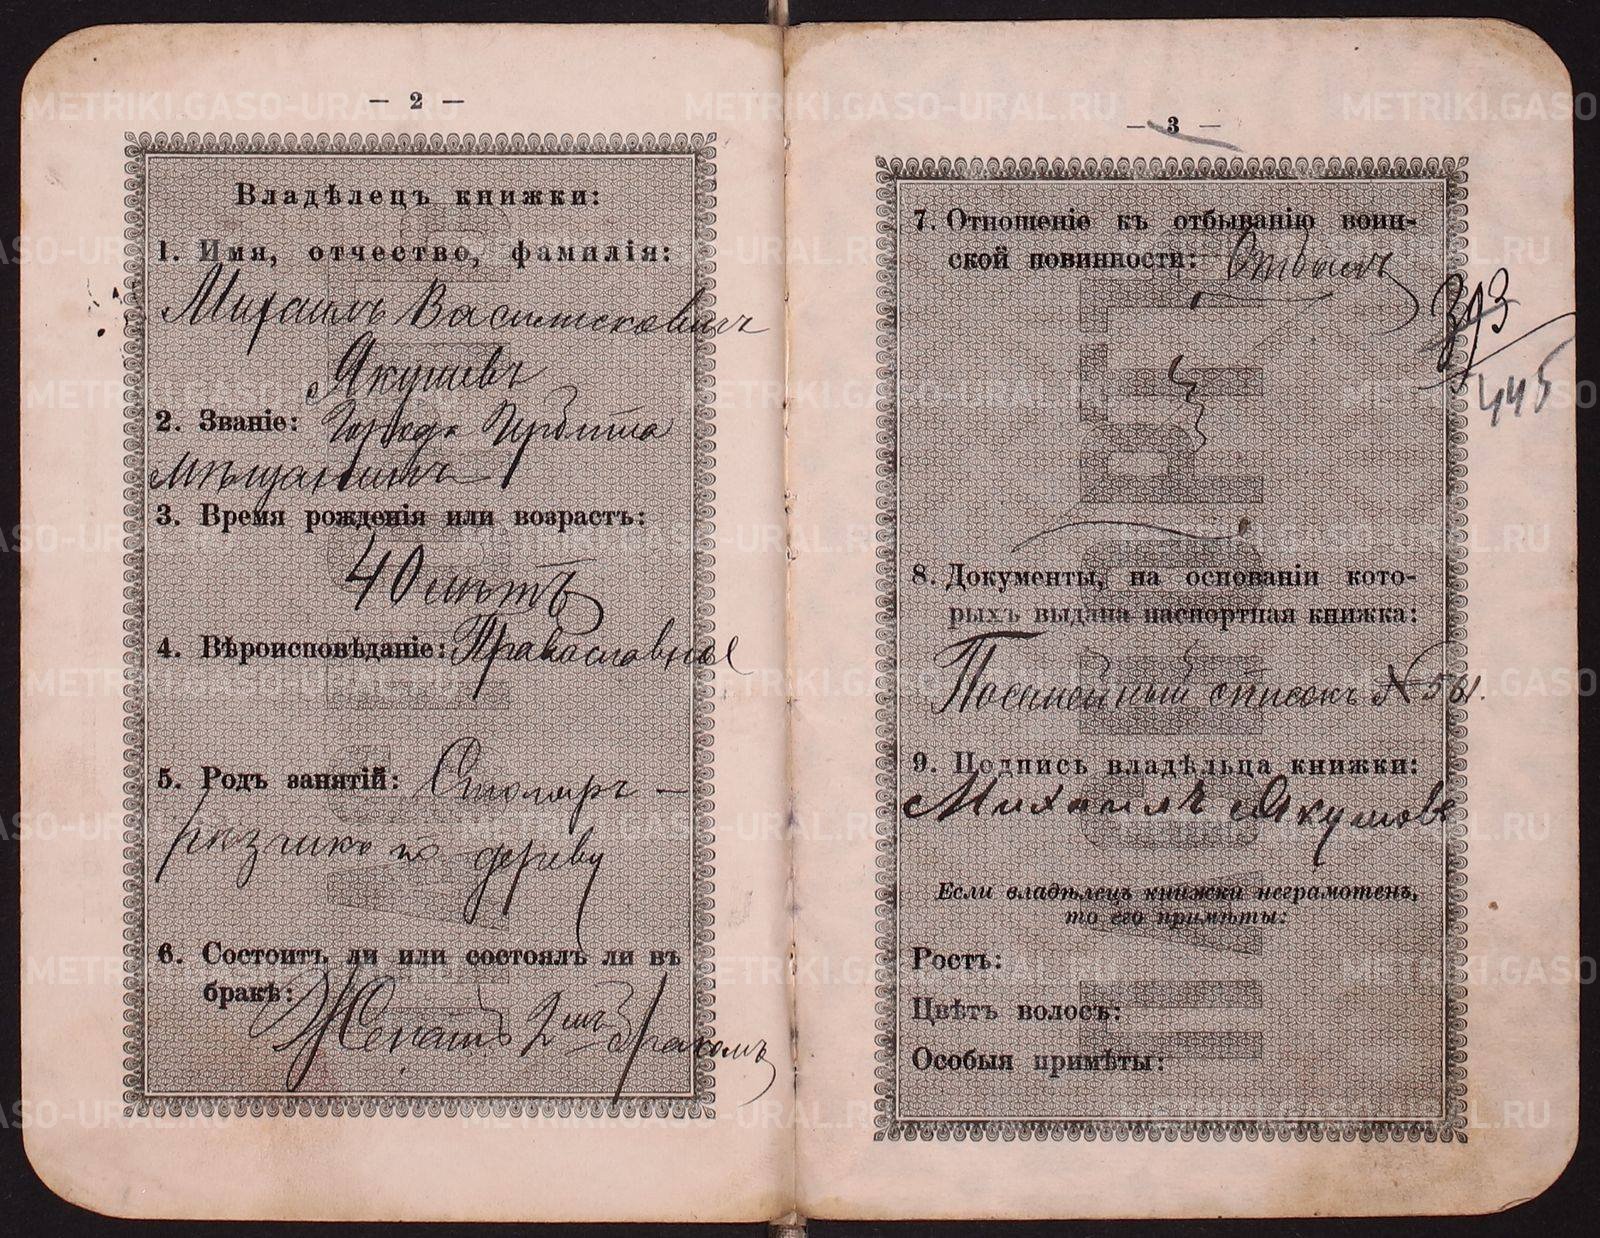 — 2 —
Владѣлецъ книжки:
1. Имя, отчество, фамилія:
Михаилъ Василисковичъ
Якушевъ
2. Званіе: Города Ирбита
мѣщанинъ
3. Время рожденія или возрастъ:
40 лѣтъ
4. Вѣроисповѣданіе: Православное
5. Родъ занятій: Столяръ —
рѣзчикъ по дереву
6. Состоитъ ли или состоялъ ли въ
бракѣ: Женатъ 2мъ бракомъ
— 3 —
7. Отношеніе къ отбыванію воин-
ской повинности: Отбылъ
393
445
8. Документы, на основаніи кото-
рыхъ выдана паспортная книжка:
Посемейный списокъ № 561.
9. Подпись владѣльца книжки:
Михаилъ Якушевъ
Если владѣлецъ книжки неграмотенъ,
то его примѣты:
Ростъ:
Цвѣтъ волосъ:
Особыя примѣты:
METRIKI.GASO-URAL.RU